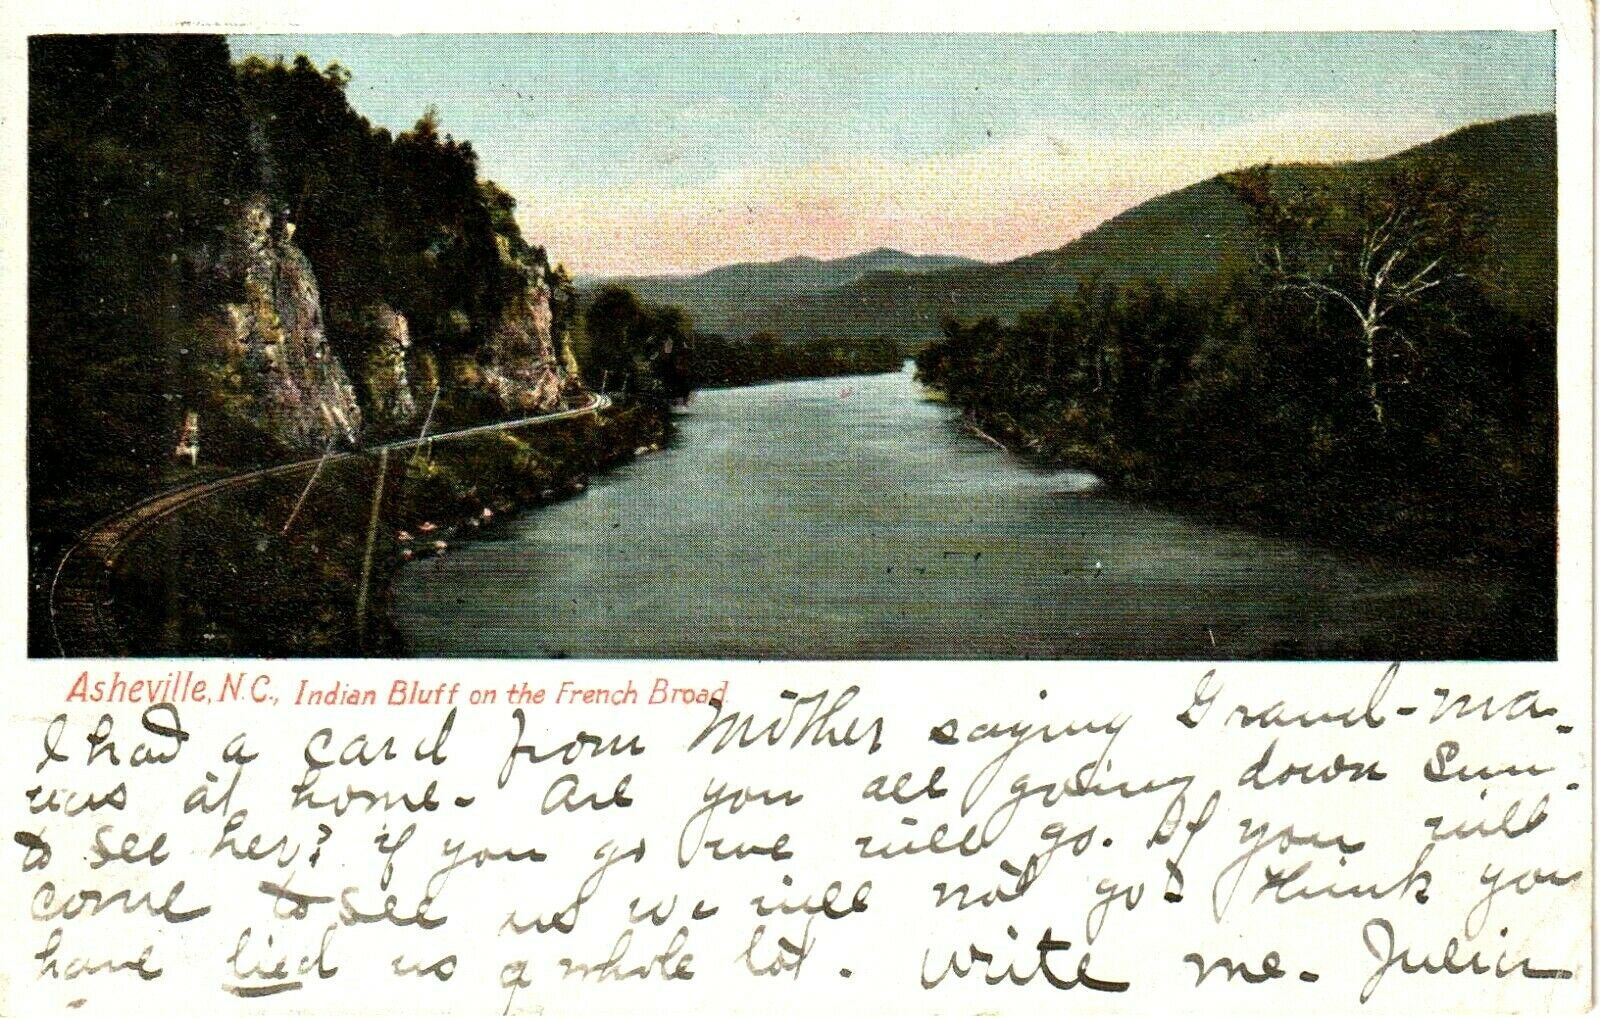 Asheville, N.C., Indian Bluff on the French Broad.
I had a card from Mother saying Grand-ma-
was at home. Are you all going down Sun.
to see her? if you go we will go. If you will
come to see us we will not go. Think you
have lied us a whole lot. Write me. Julia